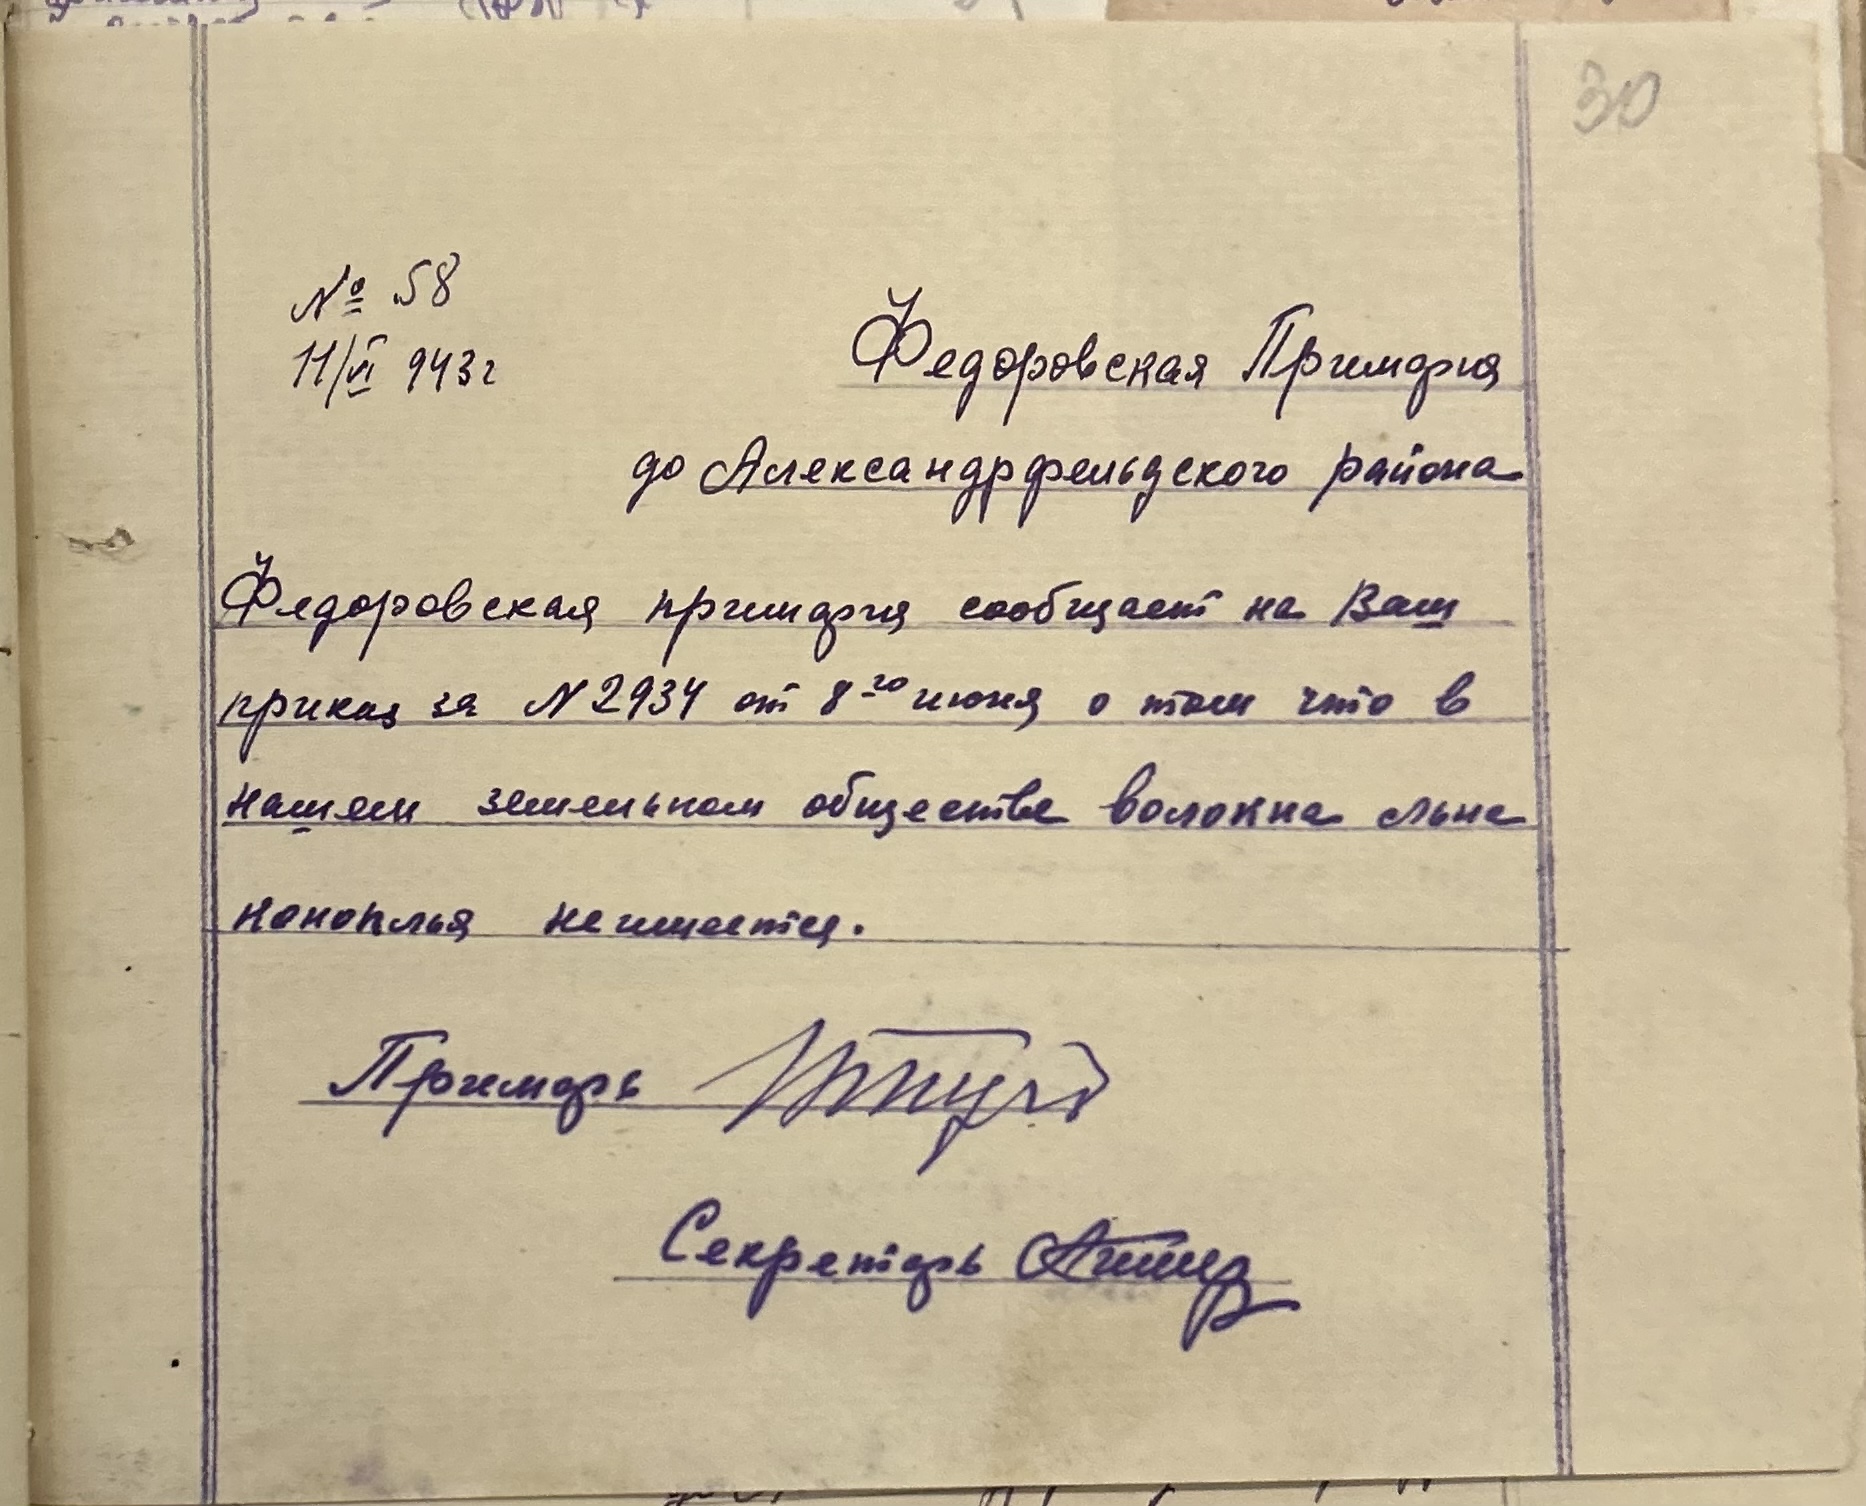 30
№ 58
11/VI 943 г
Федоровская Примария
до Александрфельдского района
Федоровская примария сообщает на Ваш
приказ за N 2934 от 8го июня о том что в
нашем земельном обществе волокна льна
конопля не имеется.
Примарь
Секретарь